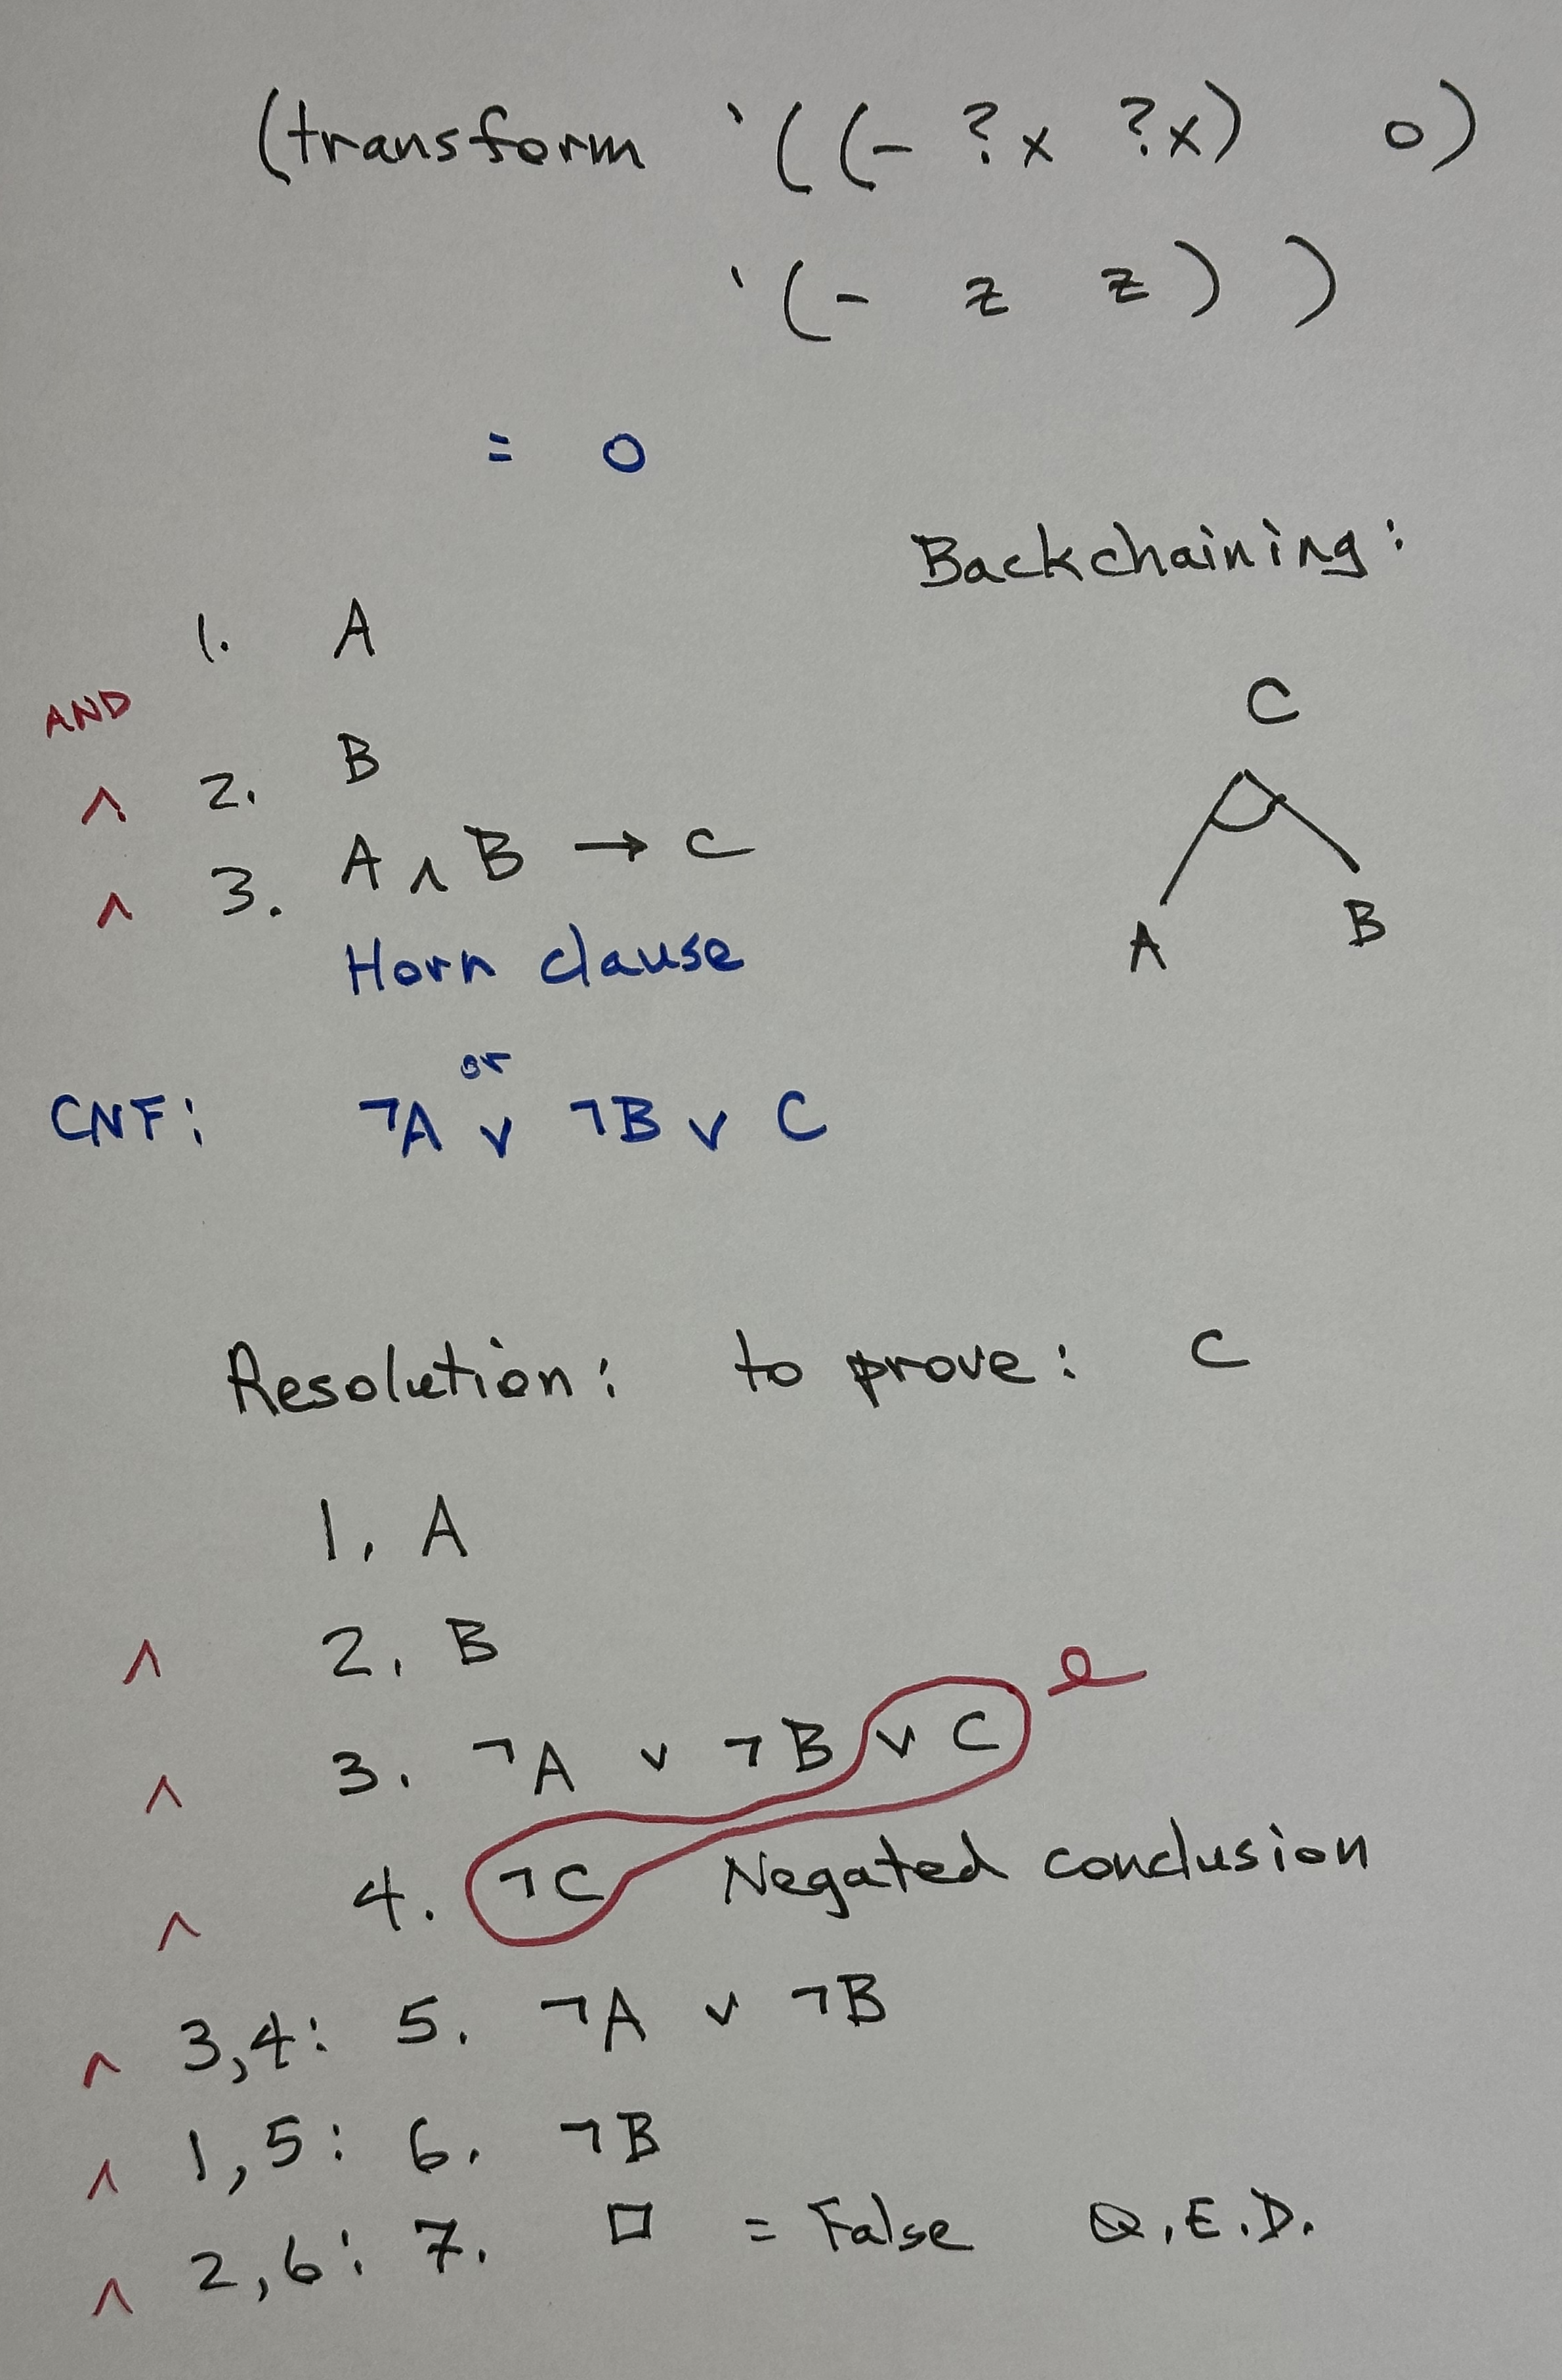 (transform '((- ?x ?x) 0)
'(- z z))
= 0
Backchaining:
1. A
AND
∧ 2. B
∧ 3. A ∧ B → C
Horn clause
C
A B
or
CNF: ¬A ∨ ¬B ∨ C
Resolution: to prove: C
1. A
∧ 2. B
∧ 3. ¬A ∨ ¬B ∨ C
∧ 4. ¬C Negated conclusion
∧ 3,4: 5. ¬A ∨ ¬B
∧ 1,5: 6. ¬B
∧ 2,6: 7. □ = False Q.E.D.